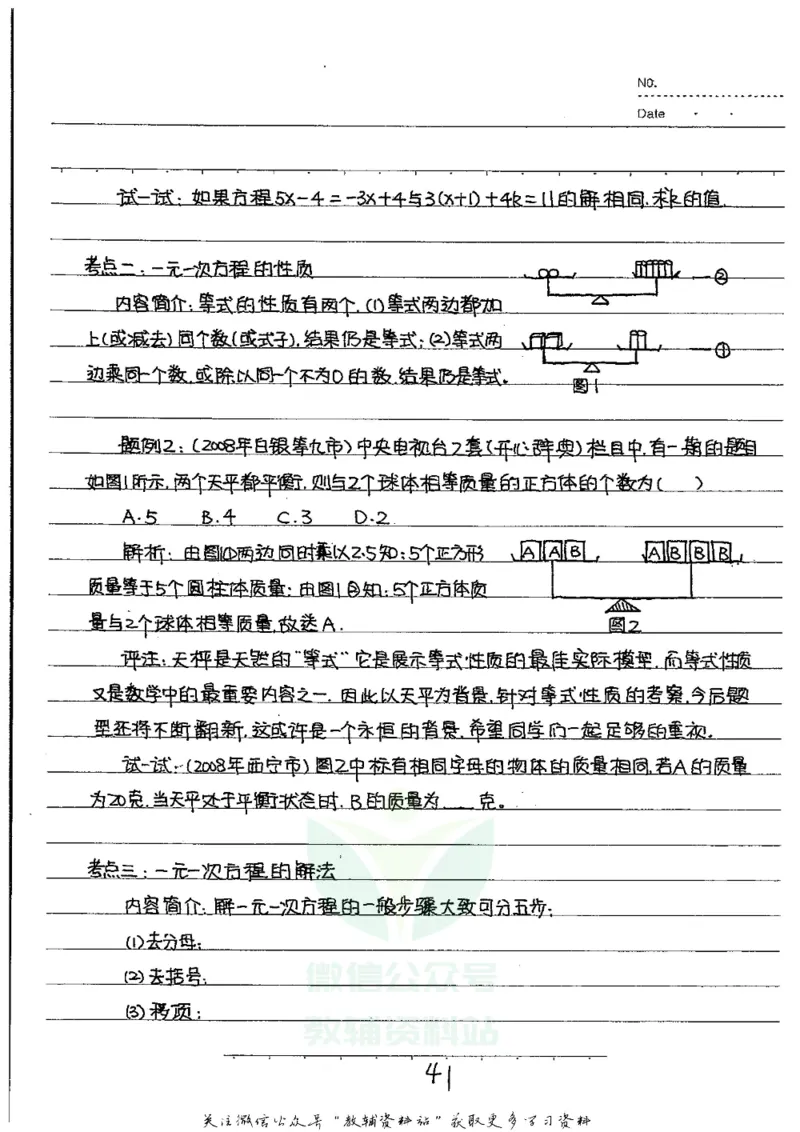 NO.
Date
试一试：如果方程5x-4=-3x+4与3(x+1)+4k=11的解相同.求k的值.
考点二：一元一次方程的性质
②
内容简介：等式的性质有两个.(1)等式两边都加
上(或减去)同个数(或式子),结果仍是等式；(2)等式两
①
边乘同一个数,或除以同一个不为0的数.结果仍是等式。
图1
题例2：(2008年白银等九市)中央电视台2套《开心辞典》栏目中,有一期的题目
如图1所示.两个天平都平衡.则与2个球体相等质量的正方体的个数为( )
A.5 B.4 C.3 D.2
解析：由图1①两边同时乘以2.5知：5个正方形
A A B A B B B
质量等于5个圆柱体质量；由图1②知：5个正方体质
量与2个球体相等质量.故选A.
图2
评注：天枰是天然的"等式"它是展示等式性质的最佳实际模型.而等式性质
又是数学中的最重要内容之一.因此以天平为背景.针对等式性质的考察.今后题
型还将不断翻新.这或许是一个永恒的背景.希望同学们一起足够的重视.
试一试：(2008年西宁市)图2中标有相同字母的物体的质量相同.若A的质量
为20克.当天平处于平衡状态时.B的质量为 克。
考点三：一元一次方程的解法
内容简介：解一元一次方程的一般步骤大致可分五步：
(1)去分母；
(2)去括号；
(3)移项；
微信公众号
教辅资料站
41
关注微信公众号"教辅资料站"获取更多学习资料